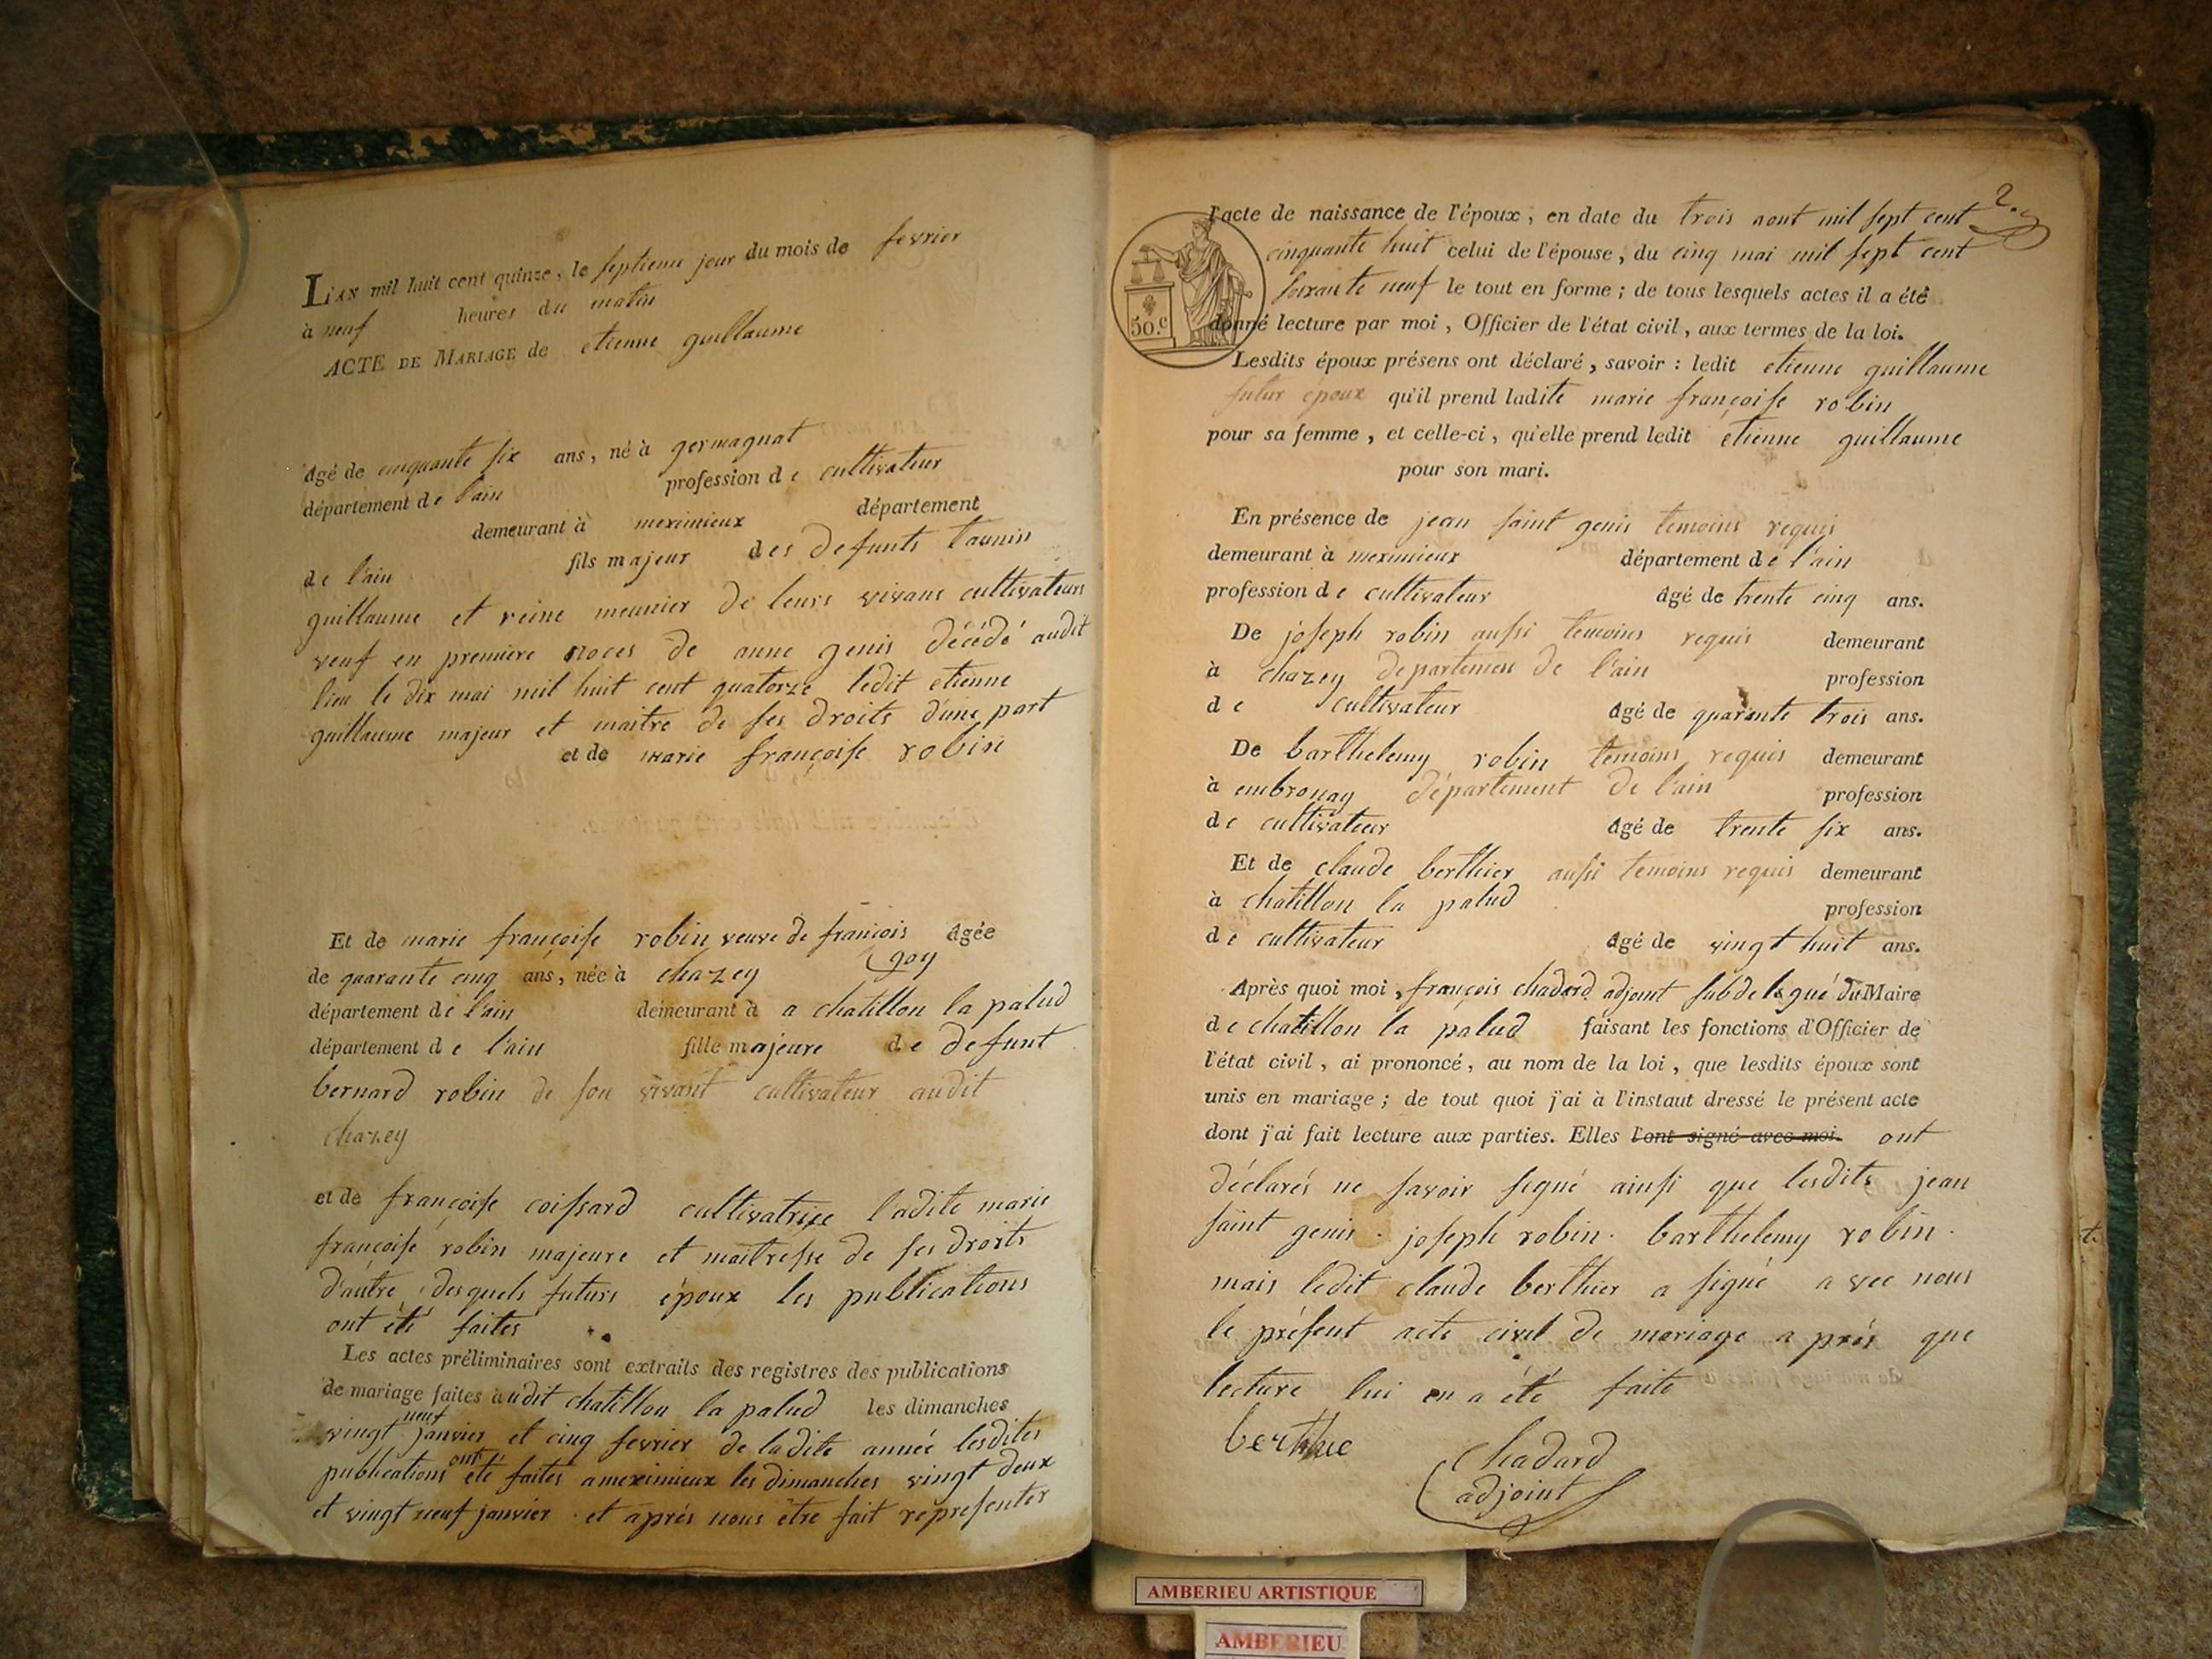 L'AN mil huit cent quinze, le septieme jour du mois de fevrier
à neuf heures du matin
ACTE DE MARIAGE de etienne guillaume
âgé de cinquante six ans, né à germagnat
département de l'ain profession de cultivateur
demeurant à meximieux département
de l'ain fils majeur des defunts taurin
guillaume et reine meunier de leurs vivans cultivateurs
veuf en premiere noces de anne genis décédé audit
lieu le dix mai mil huit cent quatorze ledit etienne
guillaume majeur et maitre de ses droits d'une part
et de marie françoise robin
Et de marie françoise robin veuve de francois âgée
goy
de quarante cinq ans, née à chazey
département de l'ain demeurant à a chatillon la palud
département de l'ain fille majeure de defunt
bernard robin de son vivant cultivateur audit
chazey
et de françoise coissard cultivatrixe ladite marie
françoise robin majeure et maitresse de ses droits
d'autre, desquels futurs époux les publications
ont été faites
Les actes préliminaires sont extraits des registres des publications
de mariage faites audit chatillon la palud les dimanches
vingt neuf janvier et cinq fevrier de ladite année lesdites
publications ont été faites a meximieux les dimanches vingt deux
et vingt neuf janvier . et aprés nous être fait representer
2.
l'acte de naissance de l'époux, en date du trois aout mil sept cent
cinquante huit celui de l'épouse, du cinq mai mil sept cent
soixante neuf le tout en forme ; de tous lesquels actes il a été
50.c donné lecture par moi, Officier de l'état civil, aux termes de la loi.
Lesdits époux présens ont déclaré, savoir : ledit etienne guillaume
futur époux qu'il prend ladite marie françoise robin
pour sa femme, et celle-ci, qu'elle prend ledit etienne guillaume
pour son mari.
En présence de jean saint genis temoins requis
demeurant à meximieux département de l'ain
profession de cultivateur âgé de trente cinq ans.
De joseph robin aussi temoins requis demeurant
à chazey departement de l'ain profession
de cultivateur âgé de quarante trois ans.
De barthelemy robin temoins requis demeurant
à embronay département de l'ain profession
de cultivateur âgé de trente six ans.
Et de claude berthier aussi temoins requis demeurant
à chatillon la palud profession
de cultivateur âgé de vingt huit ans.
Après quoi moi, françois chadard adjoint subdelegué du Maire
de chatillon la palud faisant les fonctions d'Officier de
l'état civil, ai prononcé, au nom de la loi, que lesdits époux sont
unis en mariage ; de tout quoi j'ai à l'instaut dressé le présent acte
dont j'ai fait lecture aux parties. Elles l'ont signé avec moi. ont
déclarés ne savoir signé ainsi que lesdits jean
saint genis . joseph robin . barthelemy robin .
mais ledit claude berthier a signé avec nous
le présent acte civil de mariage aprés que
lecture lui en a été faite
chadard
adjoint
AMBERIEU ARTISTIQUE
AMBERIEU